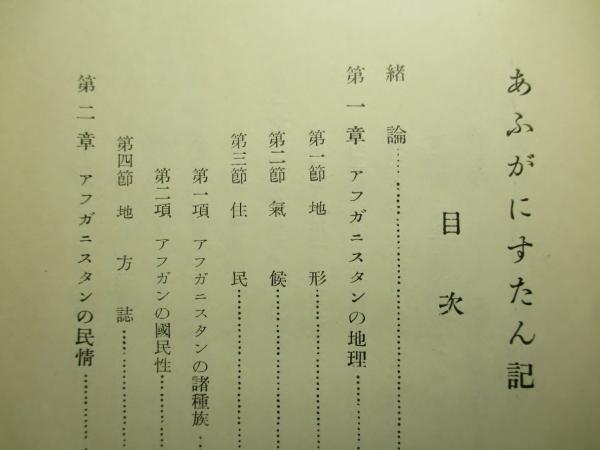 あふがにすたん記
目次
緒論……………………
第一章 アフガニスタンの地理………
第一節 地形……………
第二節 氣候……………
第三節 住民……………
第一項 アフガニスタンの諸種族…
第二項 アフガンの國民性………
第四節 地方誌…………
第二章 アフガニスタンの民情………